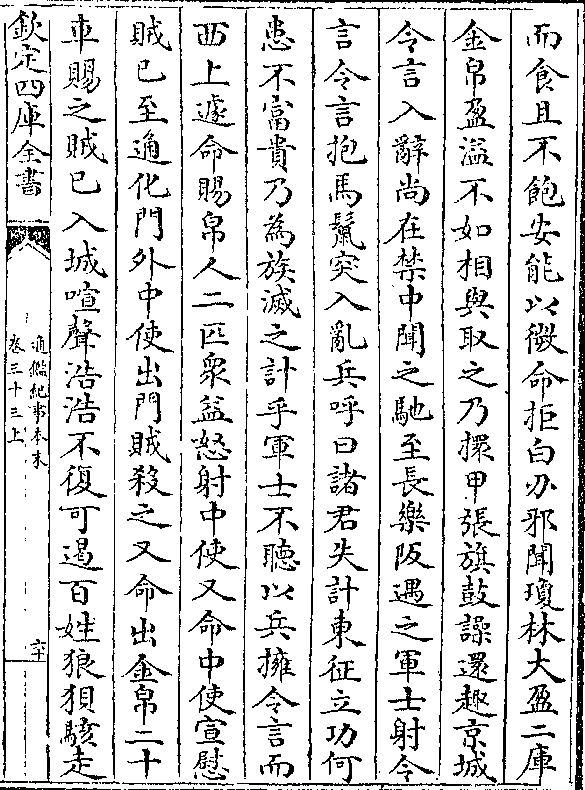 而食且不飽安能以微命拒白刃邪聞瓊林大盈二庫
金帛盈溢不如相與取之乃擐甲張旗鼓譟還趣京城
令言入辭尚在禁中聞之馳至長樂阪遇之軍士射令
言令言抱馬鬛突入亂兵呼曰諸君失計東征立功何
患不富貴乃為族滅之計乎軍士不聽以兵擁令言而
西上遽命賜帛人二匹衆益怒射中使又命中使宣慰
賊已至通化門外中使出門賊殺之又命出金帛二十
車賜之賊已入城喧聲浩浩不復可遏百姓狼狽駭走
欽定四庫全書
通鑑紀事本末
卷三十三上
六十